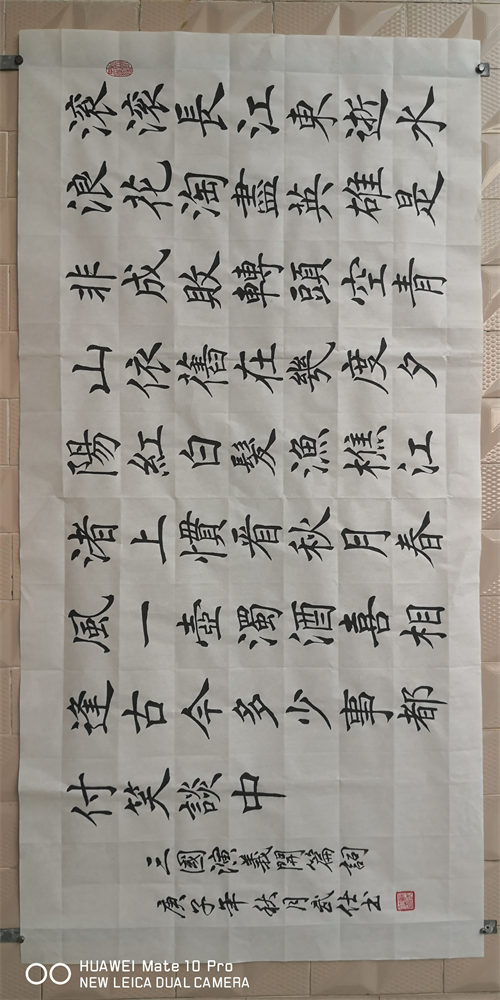 滾滾長江東逝水
浪花淘盡英雄是
非成敗轉頭空青
山依舊在幾度夕
陽紅白髮漁樵江
渚上慣看秋月春
風一壺濁酒喜相
逢古今多少事都
付笑談中
三國演義開篇詞
庚子年秋月武仕书
HUAWEI Mate 10 Pro
NEW LEICA DUAL CAMERA